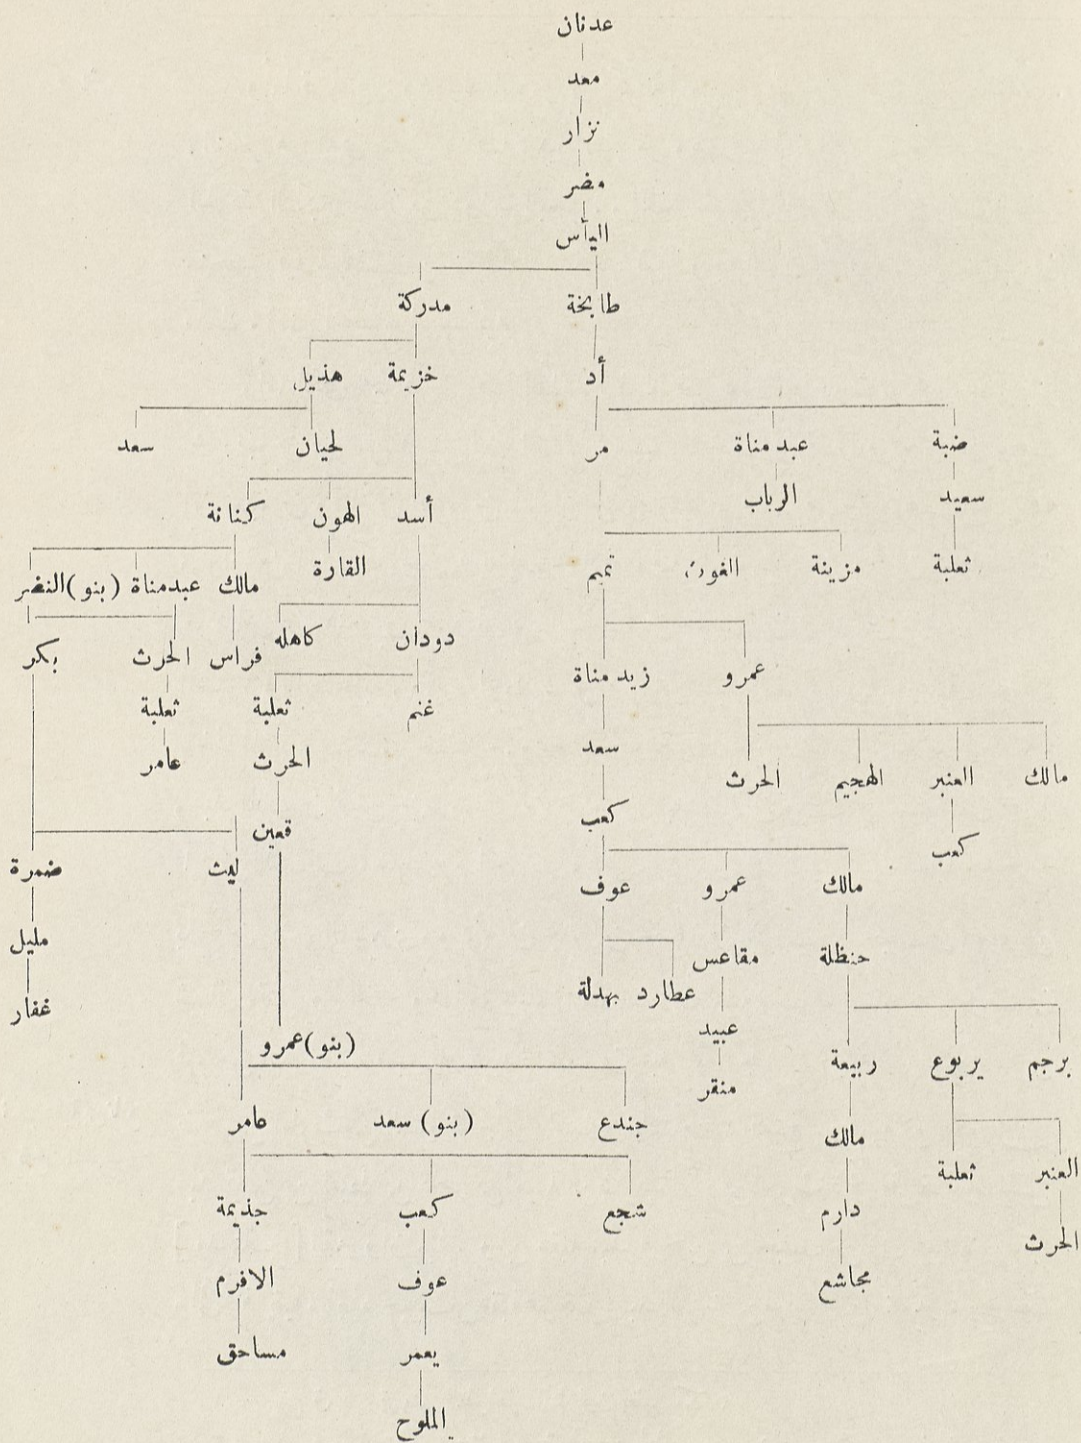 عدنان
معد
نزار
مضر
اليأس
طابخة مدركة
أد خزيمة هذيل
ضبة عبد مناة مر لحيان سعد
سعيد الرباب أسد الهون كنانة
ثعلبة مزينة الغوث تميم القارة مالك عبدمناة (بنو)النضر
عمرو زيد مناة دودان كاهله فراس الحرث بكر
غنم ثعلبة ثعلبة
سعد الحرث عامر
مالك العنبر الهجيم الحرث
كعب كعب قعين
مالك عمرو عوف ليث ضمرة
حنظلة مقاعس مليل
عطارد بهدلة غفار
عبيد
برجم يربوع ربيعة (بنو)عمرو
منقر
مالك جندع (بنو) سعد عامر
العنبر ثعلبة
دارم شجع كعب جذيمة
الحرث
مجاشع عوف الافرم
يعمر مساحق
الملوح